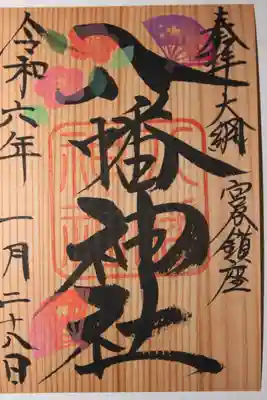 奉拝 大綱 宮谷鎮座
八幡神社
令和六年 一月二十八日